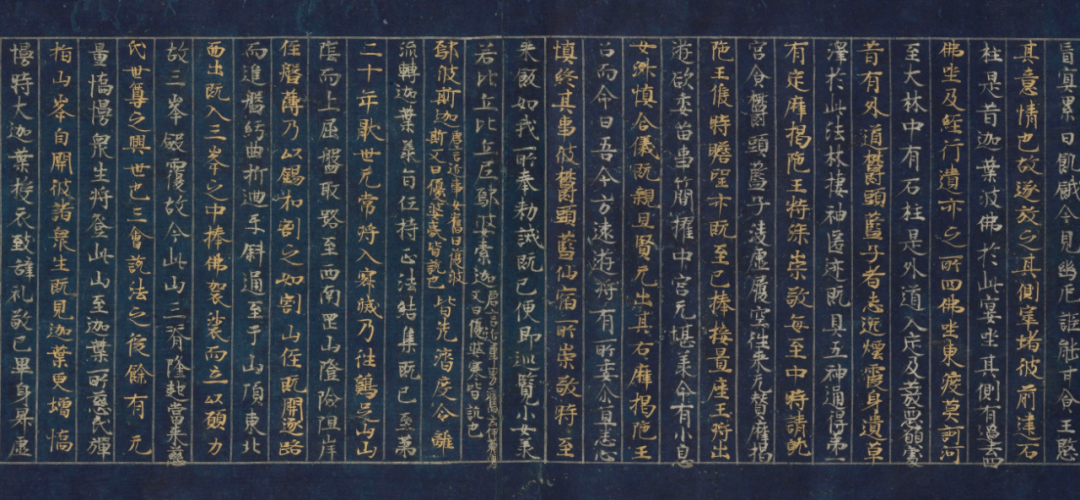 盲冥累日飢餓今見幽厄詎能甘食王愍
其意情也故遂放之其側窣堵彼前建石
柱是昔迦葉波佛於此宴坐其側有過去四
佛坐及經行遺亦之所四佛坐東渡莫訶河
至大林中有石柱是外道入定及發惡願處
昔有外道鬱頭藍子者志逸煙霞身遺草
澤於此法林棲神匿迹既具五神通得第一
有定摩揭陀王特深崇敬每至中時請就
宮食鬱頭藍子淩虛履空往來无替摩揭
陀王候時瞻望亦既至已捧接置座王將出
遊欲委留事簡擢中宮无堪承命有小息
女淑慎令儀既親且賢无出其右摩揭陀王
召而命曰吾今方遠遊將有所委尒宜悉心
慎終其事彼鬱頭藍仙宿所崇敬時至
來飯如我所奉勅誡既已便即巡覽小女承
若比丘比丘尼鄔波索迦唐言近事男舊曰又曰優婆塞皆訛也
鄔彼斯迦唐言近事女舊曰優婆斯又曰優婆夷皆訛也皆先濟度令離
流轉迦葉承旨住持正法結集既已至第
二十年厭世无常將入寂滅乃往鷄足山山
陰而上屈盤取路至西南罡山澄險阻崖
徑盤薄乃以錫扣剖之如割山徑既開逐路
而進盤紆曲折迴手斜通至于山頂東北
面出既入三峯之中捧佛袈裟而立以願力
故三峯斂覆故今此山三脊隆起當來慈
氏世尊之興世也三會說法之後餘有无
量憍慢衆生將登此山至迦葉所慈氏彈
指山峯自開彼諸衆生既見迦葉更增憍
慢時大迦葉授衣致辭礼敬已畢身昇虛